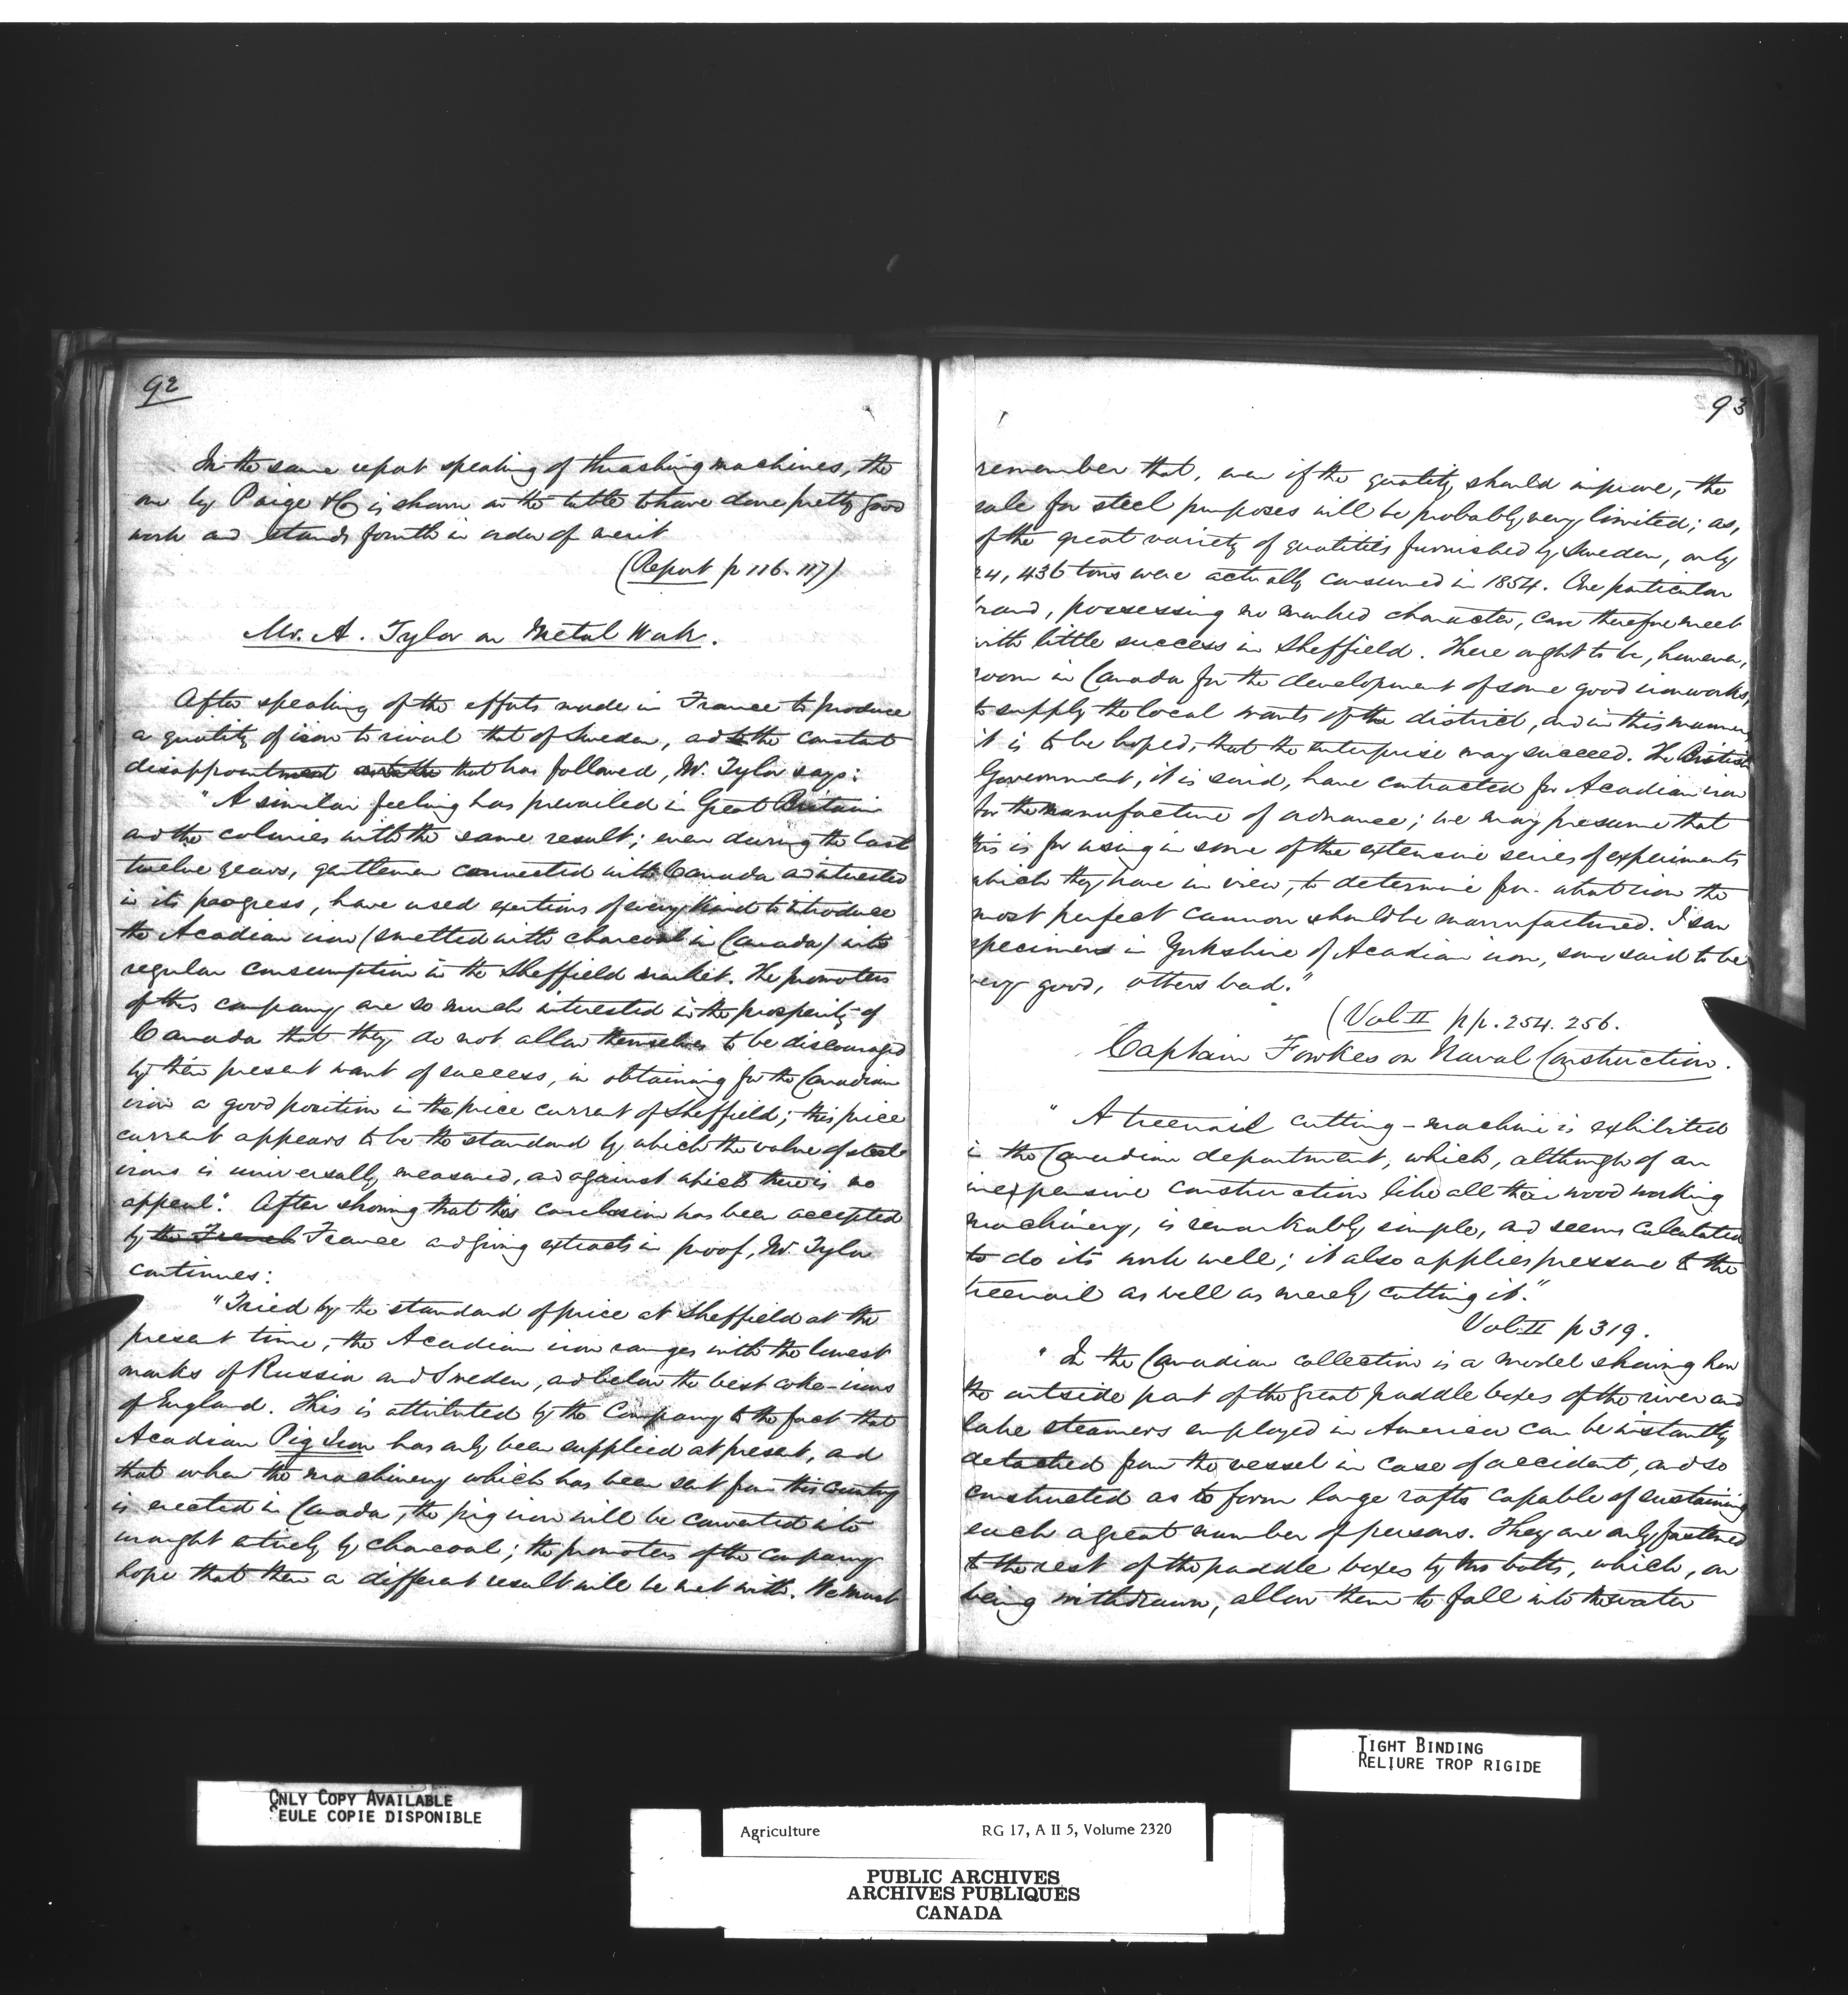 92
In the same report speaking of thrashing machines, the
one by Paige & Co is shown in the table to have done pretty good
work and stands fourth in order of merit
(Report p 116. 117)
Mr. A. Tylor on Metal Work.
After speaking of the efforts made in France to produce
a quality of iron to rival that of Sweden, and to the constant
disappointment that has followed, Mr. Tylor says:
"A similar feeling has prevailed in Great Britain
and the colonies with the same result; even during the last
twelve years, gentlemen connected with Canada and interested
in its progress, have used exertions of every kind to introduce
the Acadian iron (smelted with charcoal in Canada) into
regular consumption in the Sheffield market. The promoters
of this company are so much interested in the prosperity of
Canada that they do not allow themselves to be discouraged
by their present want of success, in obtaining for the Canadian
iron a good position in the price current of Sheffield; this price
current appears to be the standard by which the value of steel
irons is universally measured, and against which there is no
appeal". After showing that this conclusion has been accepted
by the French France and giving extracts in proof, Mr. Tylor
continues:
"Tried by the standard of price at Sheffield at the
present time, the Acadian iron ranges with the lowest
marks of Russia and Sweden, and below the best coke-irons
of England. This is attributed by the Company to the fact that
Acadian Pig Iron has only been supplied at present, and
that when the machinery which has been sent from this country
is erected in Canada, the pig iron will be converted into
wrought entirely by charcoal; the promoters of the company
hope that then a different result will be met with. We must
93
remember that, even if the quality should improve, the
sale for steel purposes will be probably very limited; as,
of the great variety of qualities furnished by Sweden, only
24,436 tons were actually consumed in 1854. One particular
brand, possessing no marked character, can therefore meet
with little success in Sheffield. There ought to be, however,
room in Canada for the development of some good ironworks,
to supply the local wants of the district, and in this manner
it is to be hoped, that the enterprise may succeed. The British
Government, it is said, have contracted for Acadian iron
for the manufacture of ordnance; we may presume that
this is for using in some of the extensive series of experiments
which they have in view, to determine from what iron the
most perfect cannon should be manufactured. I saw
specimens in Yorkshire of Acadian iron, some said to be
very good, others bad."
(Vol II pp. 254. 256.
Captain Fowkes on Naval Construction.
"A treenail cutting-machine is exhibited
in the Canadian department, which, although of an
inexpensive construction like all their wood working
machinery, is remarkably simple, and seems calculated
to do its work well; it also applies pressure to the
treenail as well as merely cutting it."
Vol. II p 319.
"In the Canadian collection is a model showing how
the outside part of the great paddle boxes of the river and
lake steamers employed in America can be instantly
detached from the vessel in case of accident, and so
constructed as to form large rafts capable of sustaining
each a great number of persons. They are only fastened
to the rest of the paddle boxes by two bolts, which, on
being withdrawn, allow them to fall into the water
ONLY COPY AVAILABLE
SEULE COPIE DISPONIBLE
TIGHT BINDING
RELIURE TROP RIGIDE
Agriculture RG 17, A II 5, Volume 2320
PUBLIC ARCHIVES
ARCHIVES PUBLIQUES
CANADA